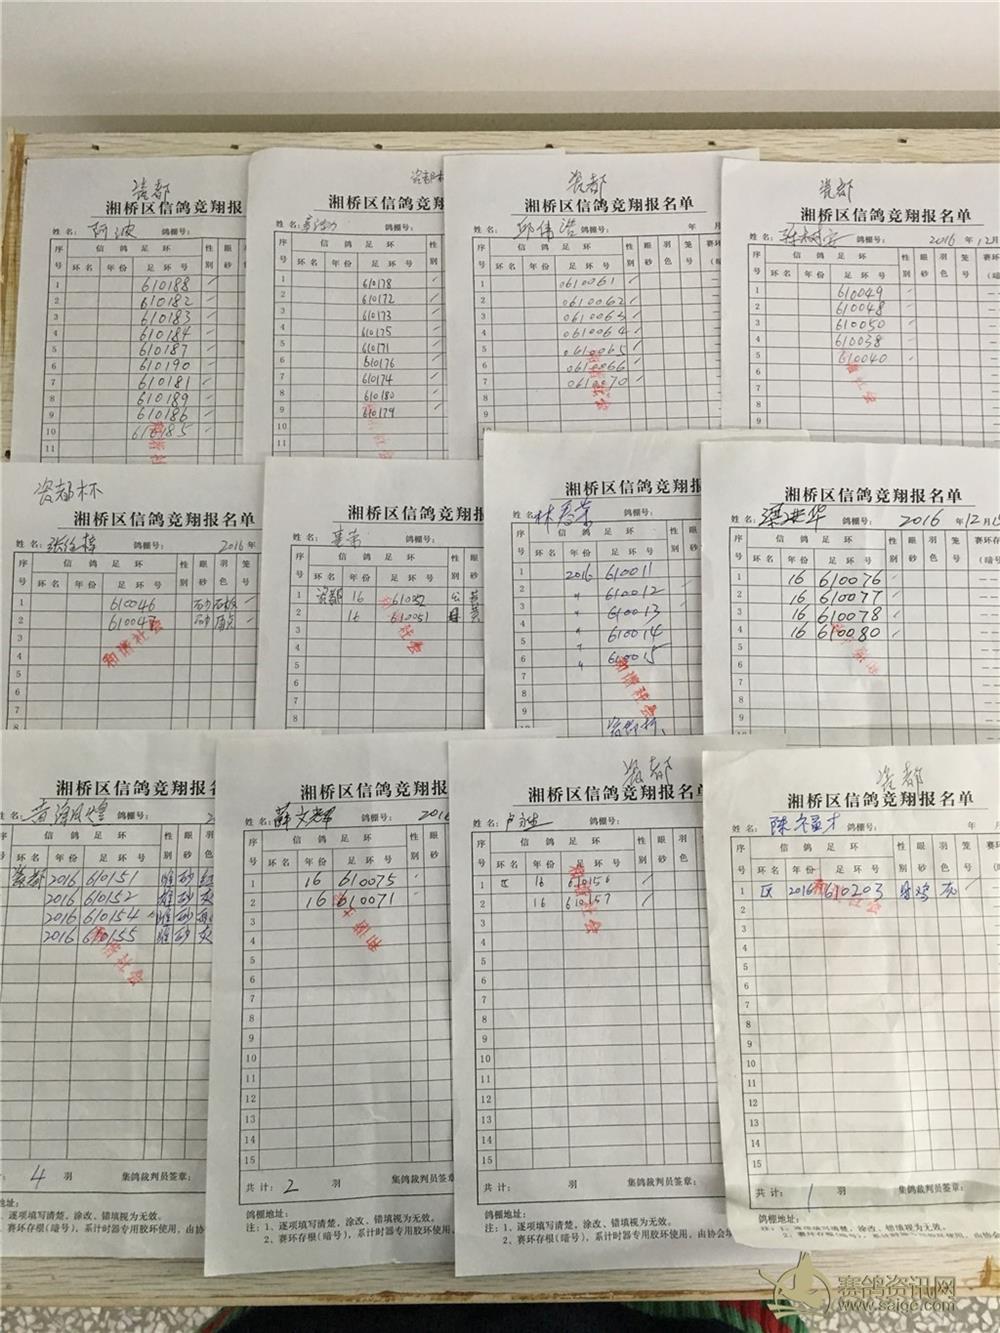 瓷都
湘桥区信鸽竞翔报
姓名: 阿波 鸽棚号:
序号 信鸽足环 性别 眼砂
环名 年份 足环号
1 610188
2 610182
3 610183
4 610184
5 610187
6 610190
7 610181
8 610189
9 610186
10 610185
11
瓷都杯
湘桥区信鸽竞翔报
姓名: 鸽棚号:
序号 信鸽足环 性别
环名 年份 足环号
1 610178
2 610172
3 610173
4 610175
5 610171
6 610176
7 610174
8 610180
9 610179
10
11
瓷都
湘桥区信鸽竞翔报名单
姓名: 邱伟浩 鸽棚号: 年 月
序号 信鸽足环 性别 眼砂 羽色 笼号
环名 年份 足环号
1 0610061
2 0610062
3 0610063
4 0610064
5 0610065
6 0610066
7 0610070
8
9
瓷都
湘桥区信鸽竞翔报名单
姓名: 鸽棚号: 2016 年 12 月
序号 信鸽足环 性别 眼砂 羽色 笼号 赛环
环名 年份 足环号 (暗
1 610049
2 610048
3 610050
4 610038
5 610040
6
7
8
9
10
瓷都杯
湘桥区信鸽竞翔报名单
姓名: 鸽棚号: 2016 年
序号 信鸽足环 性别 眼砂 羽色 笼号
环名 年份 足环号
1 610046 砂
2 610047 砂
3
4
5
6
7
8
和谐社会
湘桥区信鸽竞翔报名
姓名: 鸽棚号:
序号 信鸽足环 性别 眼砂
环名 年份 足环号
1 瓷都 16 610052 公 黄
2 16 610051 母 黄
3
4
5
6
7
8
湘桥区信鸽竞翔报
姓名: 林喜荣 鸽棚号:
序号 信鸽足环
环名 年份 足环号
1 2016 610011
2 〃 610012
3 〃 610013
4 〃 610014
5 〃 610015
6
7
8
9
和谐社会
瓷都杯
湘桥区信鸽竞翔报名单
姓名: 梁洪华 鸽棚号: 2016 年 12 月 15
序号 信鸽足环 性别 眼砂 羽色 笼号 赛环
环名 年份 足环号 (暗号
1 16 610076
2 16 610077
3 16 610078
4 16 610080
5
6
7
8
9
湘桥区信鸽竞翔报名
姓名: 鸽棚号:
信鸽足环 性别 眼砂 羽色
环名 年份 足环号
瓷都 2016 610151 雌 砂 红
2016 610152 雄 砂 灰
2016 610154 雌 砂
2016 610155 雌 砂 灰
4 羽 集鸽裁判员签章:
鸽棚地址:
注: 1、逐项填写清楚,涂改、错填视为无效。
2、赛环存根(暗号),系计时器专用胶环使用,由协
湘桥区信鸽竞翔报名
姓名: 薛文 鸽棚号: 2016
序号 信鸽足环 性别 眼砂
环名 年份 足环号
1 16 610075
2 16 610071
3
4
5
6
7
8
9
10
11
12
13
14
15
共计: 2 羽 集鸽裁判员签章:
鸽棚地址:
注: 1、逐项填写清楚,涂改、错填视为无效。
2、赛环存根(暗号),系计时器专用胶环使用,
瓷都
湘桥区信鸽竞翔报名单
姓名: 鸽棚号:
序号 信鸽足环 性别 眼砂 羽色
环名 年份 足环号
1 区 16 610156
2 16 610157
3
4
5
6
7
8
9
10
11
12
13
14
15
共计: 羽 集鸽裁判员签章:
鸽棚地址:
注: 1、逐项填写清楚,涂改、错填视为无效。
2、赛环存根(暗号),系计时器专用胶环使用,由协会
瓷都
湘桥区信鸽竞翔报名单
姓名: 鸽棚号: 年 月
序号 信鸽足环 性别 眼砂 羽色 笼号 赛环
环名 年份 足环号
1 区 2016 610203 母 鸡 灰
2
3
4
5
6
7
8
9
10
11
12
13
14
15
共计: 1 羽 集鸽裁判员签章:
鸽棚地址:
注: 1、逐项填写清楚,涂改、错填视为无效。
2、赛环存根(暗号),系计时器专用胶环使用,由协会
赛鸽资讯网
www.saigc.com